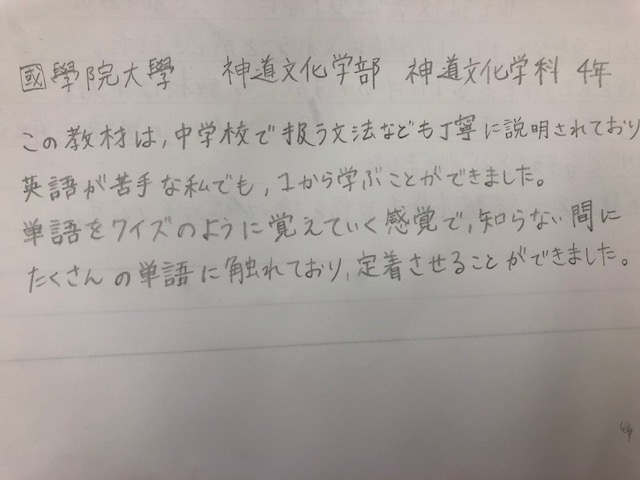 國學院大學 神道文化学部 神道文化学科 4年
この教材は,中学校で扱う文法なども丁寧に説明されており
英語が苦手な私でも,1から学ぶことができました。
単語をクイズのように覚えていく感覚で,知らない間に
たくさんの単語に触れており,定着させることができました。